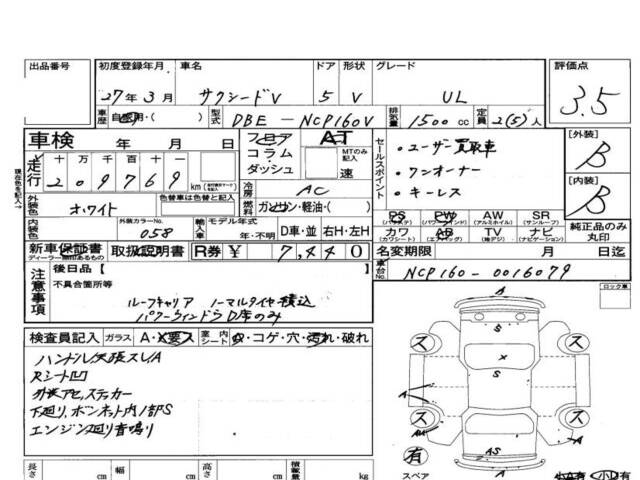 出品番号 初度登録年月 車名 ドア 形状 グレード 評価点
27年3月 サクシードV 5 V UL 3.5
車歴 自家用・( ) 型式 DBE-NCP160V 排気量 1500cc 定員 2(5)人
車検 年 月 日 フロア AT
コラム
ダッシュ MTのみ記入 速
走行 十万千百十一
209769 km
現在色を記入→
セールスポイント
・ユーザー買取車
・ワンオーナー
・キーレス
[外装] B
[内装] B
冷房 AC
外装色 ホワイト 色替車は色替と記入 燃料 ガソリン・軽油・( )
内装色 外装カラーNo. 058 輸入車 モデル年式 年・不明 D車・並 右H・左H
PS PW AW SR
(パワステ) (パワーウインド) (アルミホイル) (サンルーフ)
カワ AB TV ナビ
(カワシート) (エアバッグ) (地デジ) (ナビゲーション)
純正品のみ丸印
新車保証書 取扱説明書 R券 ¥ 7,440
ディーラー印のあるもの
名変期限 月 日迄
車台No. NCP160-0016079
注意事項 後日品【
不具合箇所等
ルーフキャリア ノーマルタイヤ積込
パワーウィンドうD席のみ
ロック車
検査員記入 ガラス A・X要ス 室内シート ・コゲ・穴・汚れ・破れ
ハンドル
スレA
Rシート凹
ステッカー
下廻り、ボンネット内ノ部S
エンジン廻り音鳴り
S
ス ス
X
S
A
ス ス
A
有 AS
スペア
長さ cm 幅 cm 高さ cm 積載量 kg